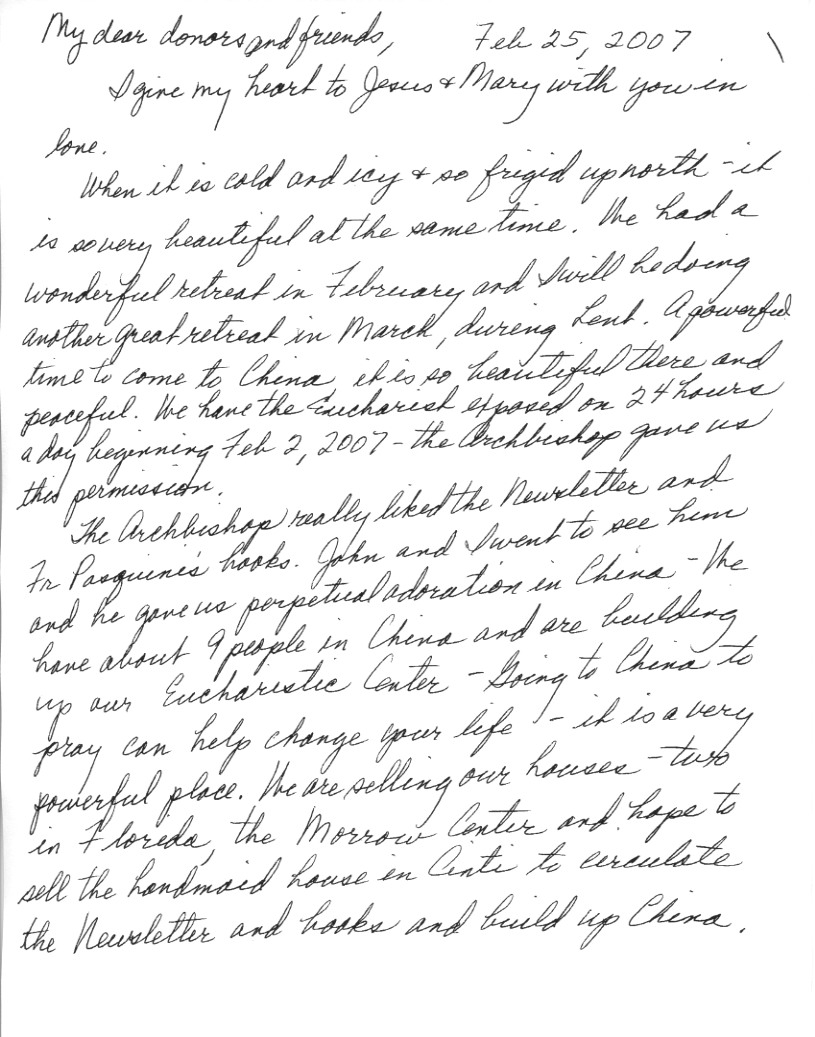 My dear donors and friends, Feb 25, 2007
I give my heart to Jesus & Mary with you in
love.
When it is cold and icy & so frigid up north - it
is so very beautiful at the same time. We had a
wonderful retreat in February and I will be doing
another great retreat in March, during Lent. A powerful
time to come to China, it is so beautiful there and
peaceful. We have the Eucharist exposed on 24 hours
a day beginning Feb 2, 2007 - the Archbishop gave us
this permission.
The Archbishop really liked the Newsletter and
Fr Pasquini's books. John and I went to see him
and he gave us perpetual adoration in China - We
have about 9 people in China and are building
up our Eucharistic Center - Going to China to
pray can help change your life - it is a very
powerful place. We are selling our houses - two
in Florida, the Morrow Center and hope to
sell the handmaid house in Cinti to circulate
the Newsletter and books and build up China.